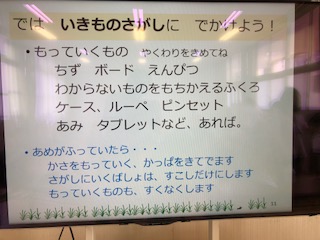 では いきものさがしに でかけよう！
・もっていくもの やくわりをきめてね
ちず ボード えんぴつ
わからないものをもちかえるふくろ
ケース、ルーペ ピンセット
あみ タブレットなど、あれば。
・あめがふっていたら・・・
かさをもっていく、かっぱをきてでます
さがしにいくばしょは、すこしだけにします
もっていくものも、すくなくします